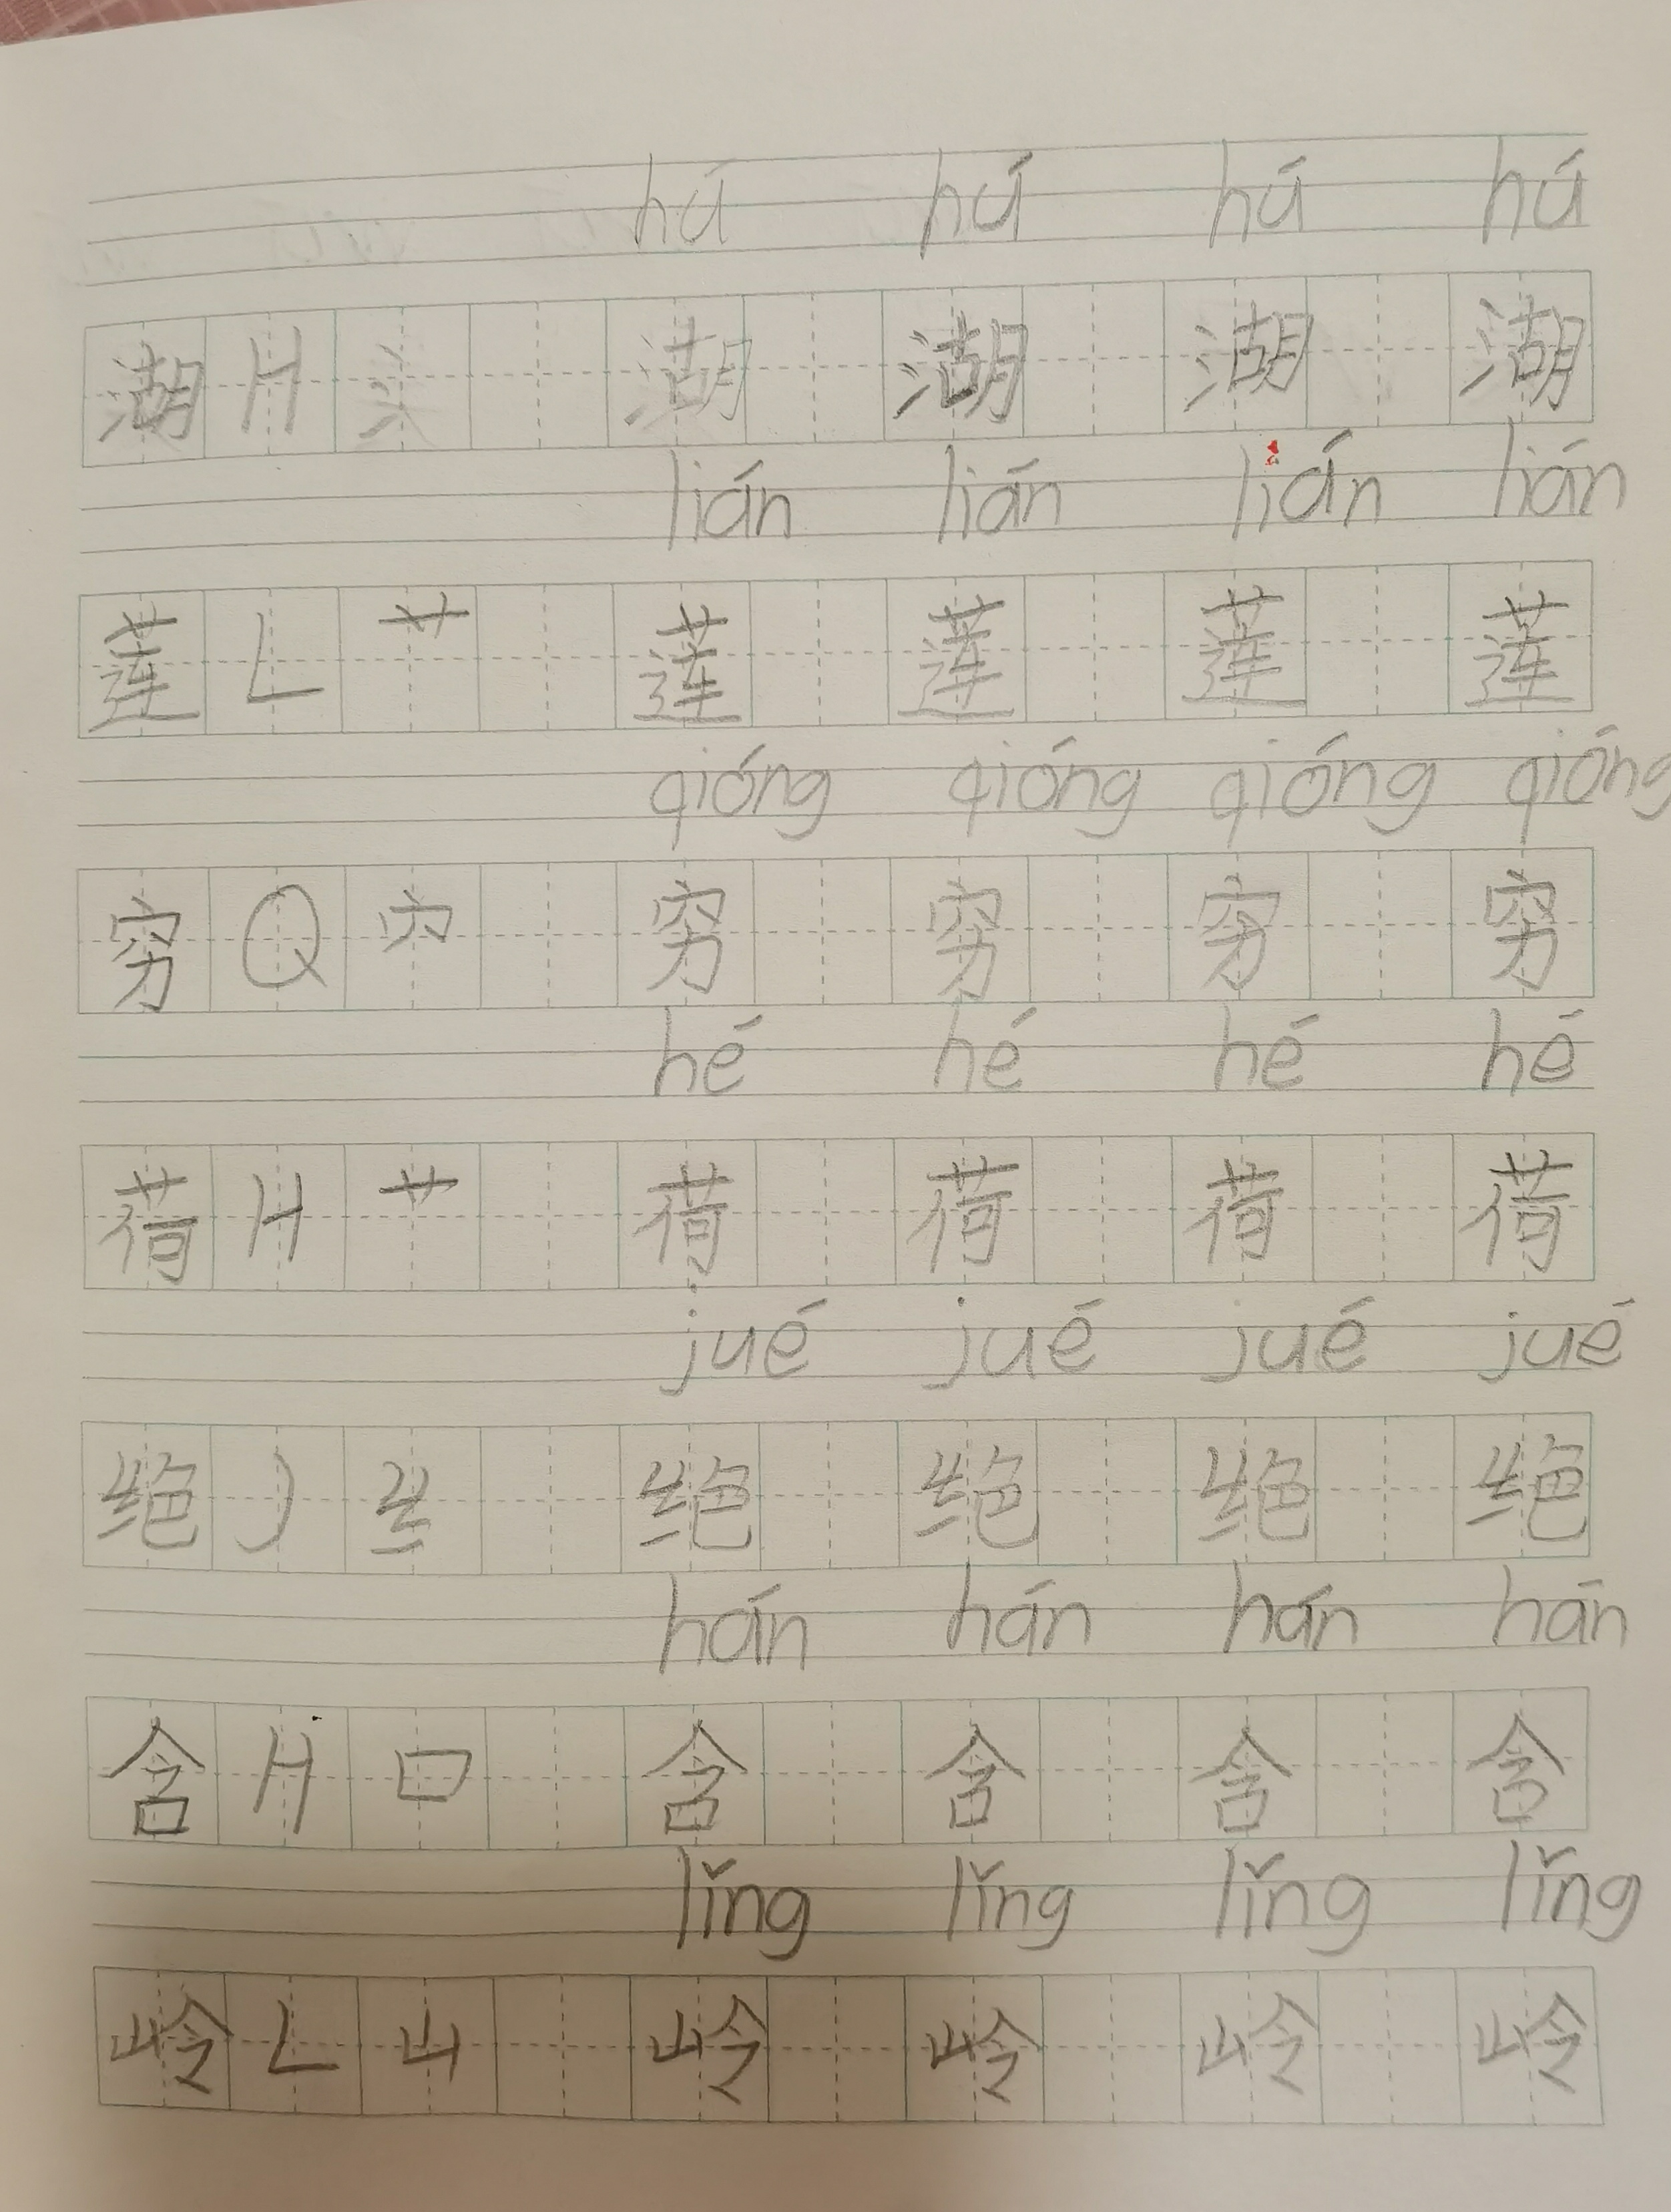 hú hú hú hú
湖 H 氵 湖 湖 湖 湖
lián lián lián lián
莲 L 艹 莲 莲 莲 莲
qióng qióng qióng qióng
穷 Q 穴 穷 穷 穷 穷
hé hé hé hé
荷 H 艹 荷 荷 荷 荷
jué jué jué jué
绝 J 纟 绝 绝 绝 绝
hán hán hán hán
含 H 口 含 含 含 含
lǐng lǐng lǐng lǐng
岭 L 山 岭 岭 岭 岭